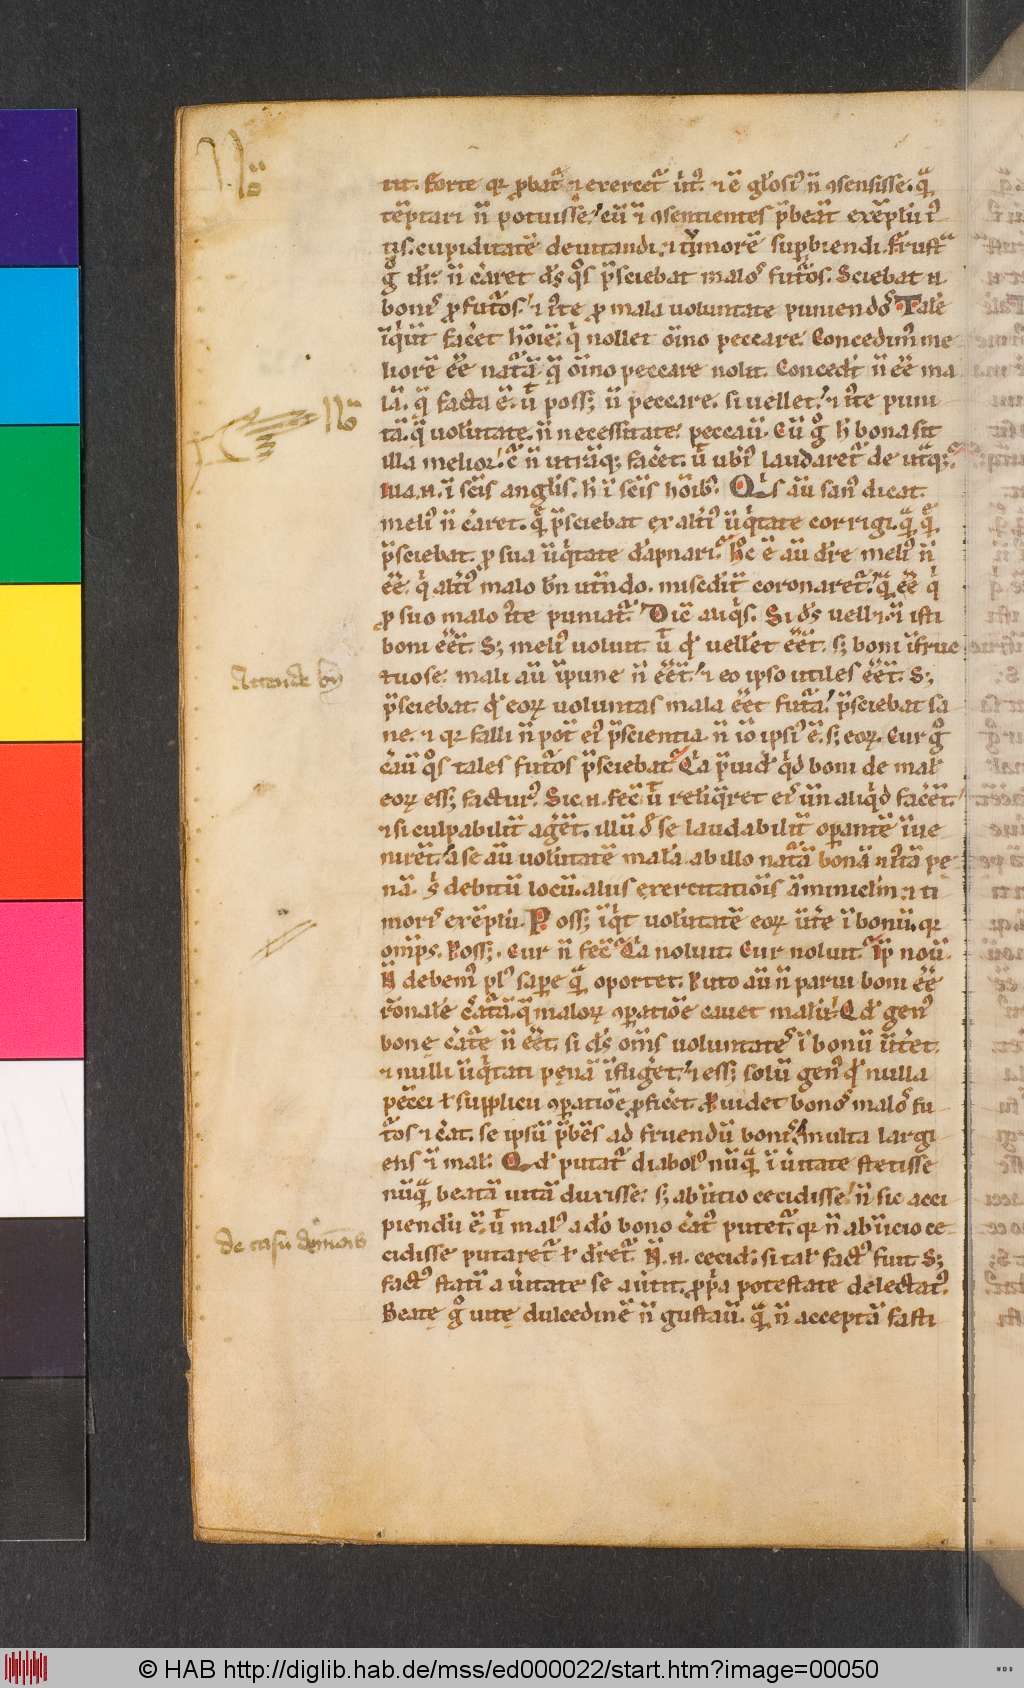 No̅
ut. Forte qr ꝓbat᷑ ⁊ exercet᷑ ⁊ ÷ gl̕osi ⁊ n̅ ꝯsensisse. q̅
te̅ptari n̅ potuisse. cu̅ ⁊ ꝯsentientes p̅beat exe̅plu̅
us. cupiditate̅ deuitandi. ⁊ timore̅ suꝑbiendi. Frust̅
g̊ d̅r. n̅ c̕aret d̅s q̊s p̅sciebat malos fut᷑os. Sciebat n.
boni᷒ ꝓfut᷑os. ⁊ iste ꝓ mala uoluntate puniendos. Tale̅
inq̇ut fac̕et ho̅ie̅. q̇ nollet o̅ino peccare. Concedim᷒ me
liore̅ e̅e nat᷑a̅. q̅ o̅ino peccare nolit. Concedāt n̅ e̅e ma
la̅. q̅ facta e̅. ut poss; n̅ peccare. si uellet. ⁊ iste puni
ta̅. q̅ uolu̅tate. n̅ necessitate peccau̅. Cu̅ g̊ h̅ bona sit
illa melior. c᷑ n̅ utra̅q; fac̕et. ut ub̕i laudaret᷑ de ut᷑q;
Nō
una. n. i̅ sc̅is angl̕is. h̅ i̅ sc̅is ho̅ib᷒. Q̇s au̅ san᷒ dicat.
meli᷒ n̅ c̕aret. q̅ p̅sciebat ex alt̕i᷒ iniq̇tate corrigi. q̅ q̅
p̅sciebat. ꝓ sua iniq̇tate da̅pnari. Hoc e̅ au̅ d̅re meli᷒ n̅
e̅e. q̇ alt̕i᷒ malo b̅n utu̅do. misc̅dit᷑ coronaret᷑. q̅ e̅e q̇
ꝓ suo malo iste puniat᷑. Dic̅ aliq̇s. Si d̅s uell; ⁊ isti
boni e̅e̅t. S; meli᷒ uoluit. ut qd̕ uellēt e̅e̅t. s; boni i̅fruc
Attende hn
tuose. mali au̅ i̅pune n̅ e̅e̅t. ⁊ eo ipso utiles e̅e̅t. S;
p̅sciebat. qd̕ eoꝝ uoluntas mala e̅et fut᷑a. p̅sciebat sa
ne. ⁊ qr falli n̅ pot̅ ei᷒ p̅scientia. n̅ io̅ ipsi᷒ e̅. s; eoꝝ. Cur g̊
c̕au̅ q̊s tales fut᷑os p̅sciebat. Q̅a p̅uid̕ q̇d boni de mal̕
eoꝝ ess; factur᷒. Sic. n. fec̅ ut reliq̅ret ei᷒ un̅ aliq̇d fac̕e̅t.
⁊ si culpabilit̅ ag̕e̅t. illu̅ d̅ se laudabilit̅ oꝑante̅ inue
nire̅t. a se au̅ uolu̅tate̅ mala̅. ab illo nat᷑a̅ bona̅ ⁊ iusta̅ pe
na̅. s̕ debitu̅ locu̅. aliis exercitatio̅is aminiclm̅. ⁊ ti
moris exe̅plu̅. Poss; inq̇t uolu̅tate̅ eoꝝ u̅t̕e i̅ bonu̅. qr
om̅ps. Poss;. Cur n̅ fec̅. Q̅a noluit. Cur noluit. Ip̅ nou̅.
N̅ debem᷒ pl᷒ sape q̅ oportet. Puto au̅ n̅ parui boni e̅e
r̅onale̅ c̕at᷑a̅. q̅ maloꝝ ꝯꝑatio̅e cauet malu̅. Qd̕ gen᷒
bone̜ c̕at᷑e n̅ e̅e̅t. si d̅s om̅s uoluntates i̅ bonu̅ u̅t̕et.
⁊ nulli iniq̇tati pe̜na̅ i̅flig̕et. ⁊ ess; solu̅ gen᷒ qd̕ nulla
pecc̅i ł supplicii ꝯꝑatio̅e ꝓfic̕et. P̅uidet bonos malos fu
t᷑os ⁊ c̕at. se ipsu̅ p̅be̅s ad fruendu̅ bonis. multa largi
ens ⁊ malis. Qd̕ putat᷑ diabol᷒ nu̅q̅ i̅ u̅itate stetisse
nu̅q̅ beata̅ uita̅ duxisse. s; ab initio cecidisse. n̅ sic acci
de casu demonis
piendu̅ e̅. ut mal᷒ a do̅ bono c̕at᷒ putet᷑. qr n̅ ab inicio ce
cidisse putaret᷑ ł d̅ret᷑. N̅. n. cecid̕. si tal̕ fact᷒ fuit. S;
fact᷒ stati̅ a u̅itate se au̅tit. ꝓpa potestate delectat᷒.
Beate̜ g̊ uite̜ dulcedine̅ n̅ gustau̅. q̅ n̅ accepta̅ fasti
© HAB http://diglib.hab.de/mss/ed000022/start.htm?image=00050